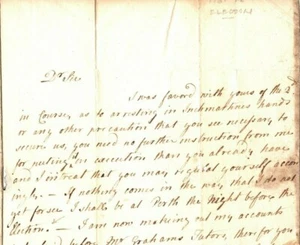 Dr Sir
I was favord with yours of the 2d
in Course, as to arresting in Inchmathnes hands
or any other precaution that you see necessary to
secure us, you need no further instruction from me
for puting in execution than you already have
and I intreat that you may regulat yourself accor
ingly. – If nothing comes in the way that I do not
yet forsee I shall be at Perth the Night before the
Election. – I am now making out my accounts
Mr Grahams Tutors, therefor you